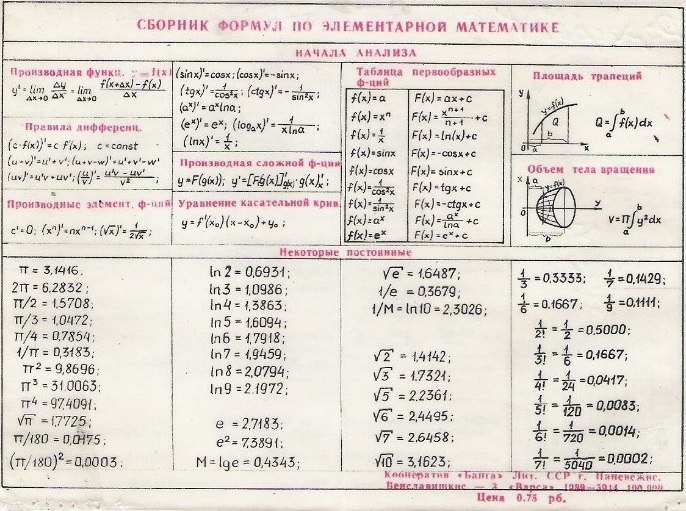 СБОРНИК ФОРМУЛ ПО ЭЛЕМЕНТАРНОЙ МАТЕМАТИКЕ
НАЧАЛА АНАЛИЗА
Производная функц. y=f(x)
y' = lim Δx→0 Δy/Δx = lim Δx→0 (f(x+Δx)-f(x))/Δx
Правила дифференц.
(c·f(x))'=c f'(x); c=const
(u-v)'=u'+v'; (u+v-w)'=u'+v'-w'
(uv)'=u'v+uv'; (u/v)'=(u'v-uv')/v²;
Производные элемент. ф-ций
c'=0; (xⁿ)'=nxⁿ⁻¹; (√x)'=1/(2√x);
(sinx)'=cosx; (cosx)'=-sinx;
(tgx)'=1/cos²x; (ctgx)'=-1/sin²x;
(aˣ)'=aˣlna;
(eˣ)'=eˣ; (logₐx)'=1/(xlna);
(lnx)'=1/x;
Производная сложной ф-ции
y=F(g(x)); y'=[F(g(x))]'g(x)·g(x)'x;
Уравнение касательной крив.
y=f'(x₀)(x-x₀)+y₀;
Таблица первообразных
ф-ций
f(x)=a F(x)=ax+c
f(x)=xⁿ F(x)=xⁿ⁺¹/(n+1)+c
f(x)=1/x F(x)=ln(x)+c
f(x)=sinx F(x)=-cosx+c
f(x)=cosx F(x)=sinx+c
f(x)=1/cos²x F(x)=tgx+c
f(x)=1/sin²x F(x)=-ctgx+c
f(x)=aˣ F(x)=aˣ/lna+c
f(x)=eˣ F(x)=eˣ+c
Площадь трапеций
y
y=f(x)
Q
a b x
Q=∫ₐᵇf(x)dx
Объем тела вращения
x
a
y=f(x)
y
b
V=π∫ₐᵇy²dx
Некоторые постоянные
π = 3,1416.
2π = 6,2832;
π/2 = 1,5708;
π/3 = 1,0472;
π/4 = 0,7854;
1/π = 0,3183;
π² = 9,8696;
π³ = 31,0063;
π⁴ = 97,4091;
√π = 1,7725;
π/180 = 0,0175;
(π/180)² = 0,0003;
ln2 = 0,6931;
ln3 = 1,0986;
ln4 = 1,3863;
ln5 = 1,6094;
ln6 = 1,7918;
ln7 = 1,9459;
ln8 = 2,0794;
ln9 = 2,1972;
e = 2,7183;
e² = 7,3891;
M = lge = 0,4343;
√e = 1,6487;
1/e = 0,3679;
1/M = ln10 = 2,3026;
√2 = 1,4142;
√3 = 1,7321;
√5 = 2,2361;
√6 = 2,4495;
√7 = 2,6458;
√10 = 3,1623;
1/3 = 0,3333; 1/7 = 0,1429;
1/6 = 0,1667; 1/9 = 0,1111;
1/2! = 1/2 = 0,5000;
1/3! = 1/6 = 0,1667;
1/4! = 1/24 = 0,0417;
1/5! = 1/120 = 0,0083;
1/6! = 1/720 = 0,0014;
1/7! = 1/5040 = 0,0002;
Кооператив «Банга» Лит. ССР г. Паневежис.
3 «Варса» 100.000
Цена 0.75 рб.